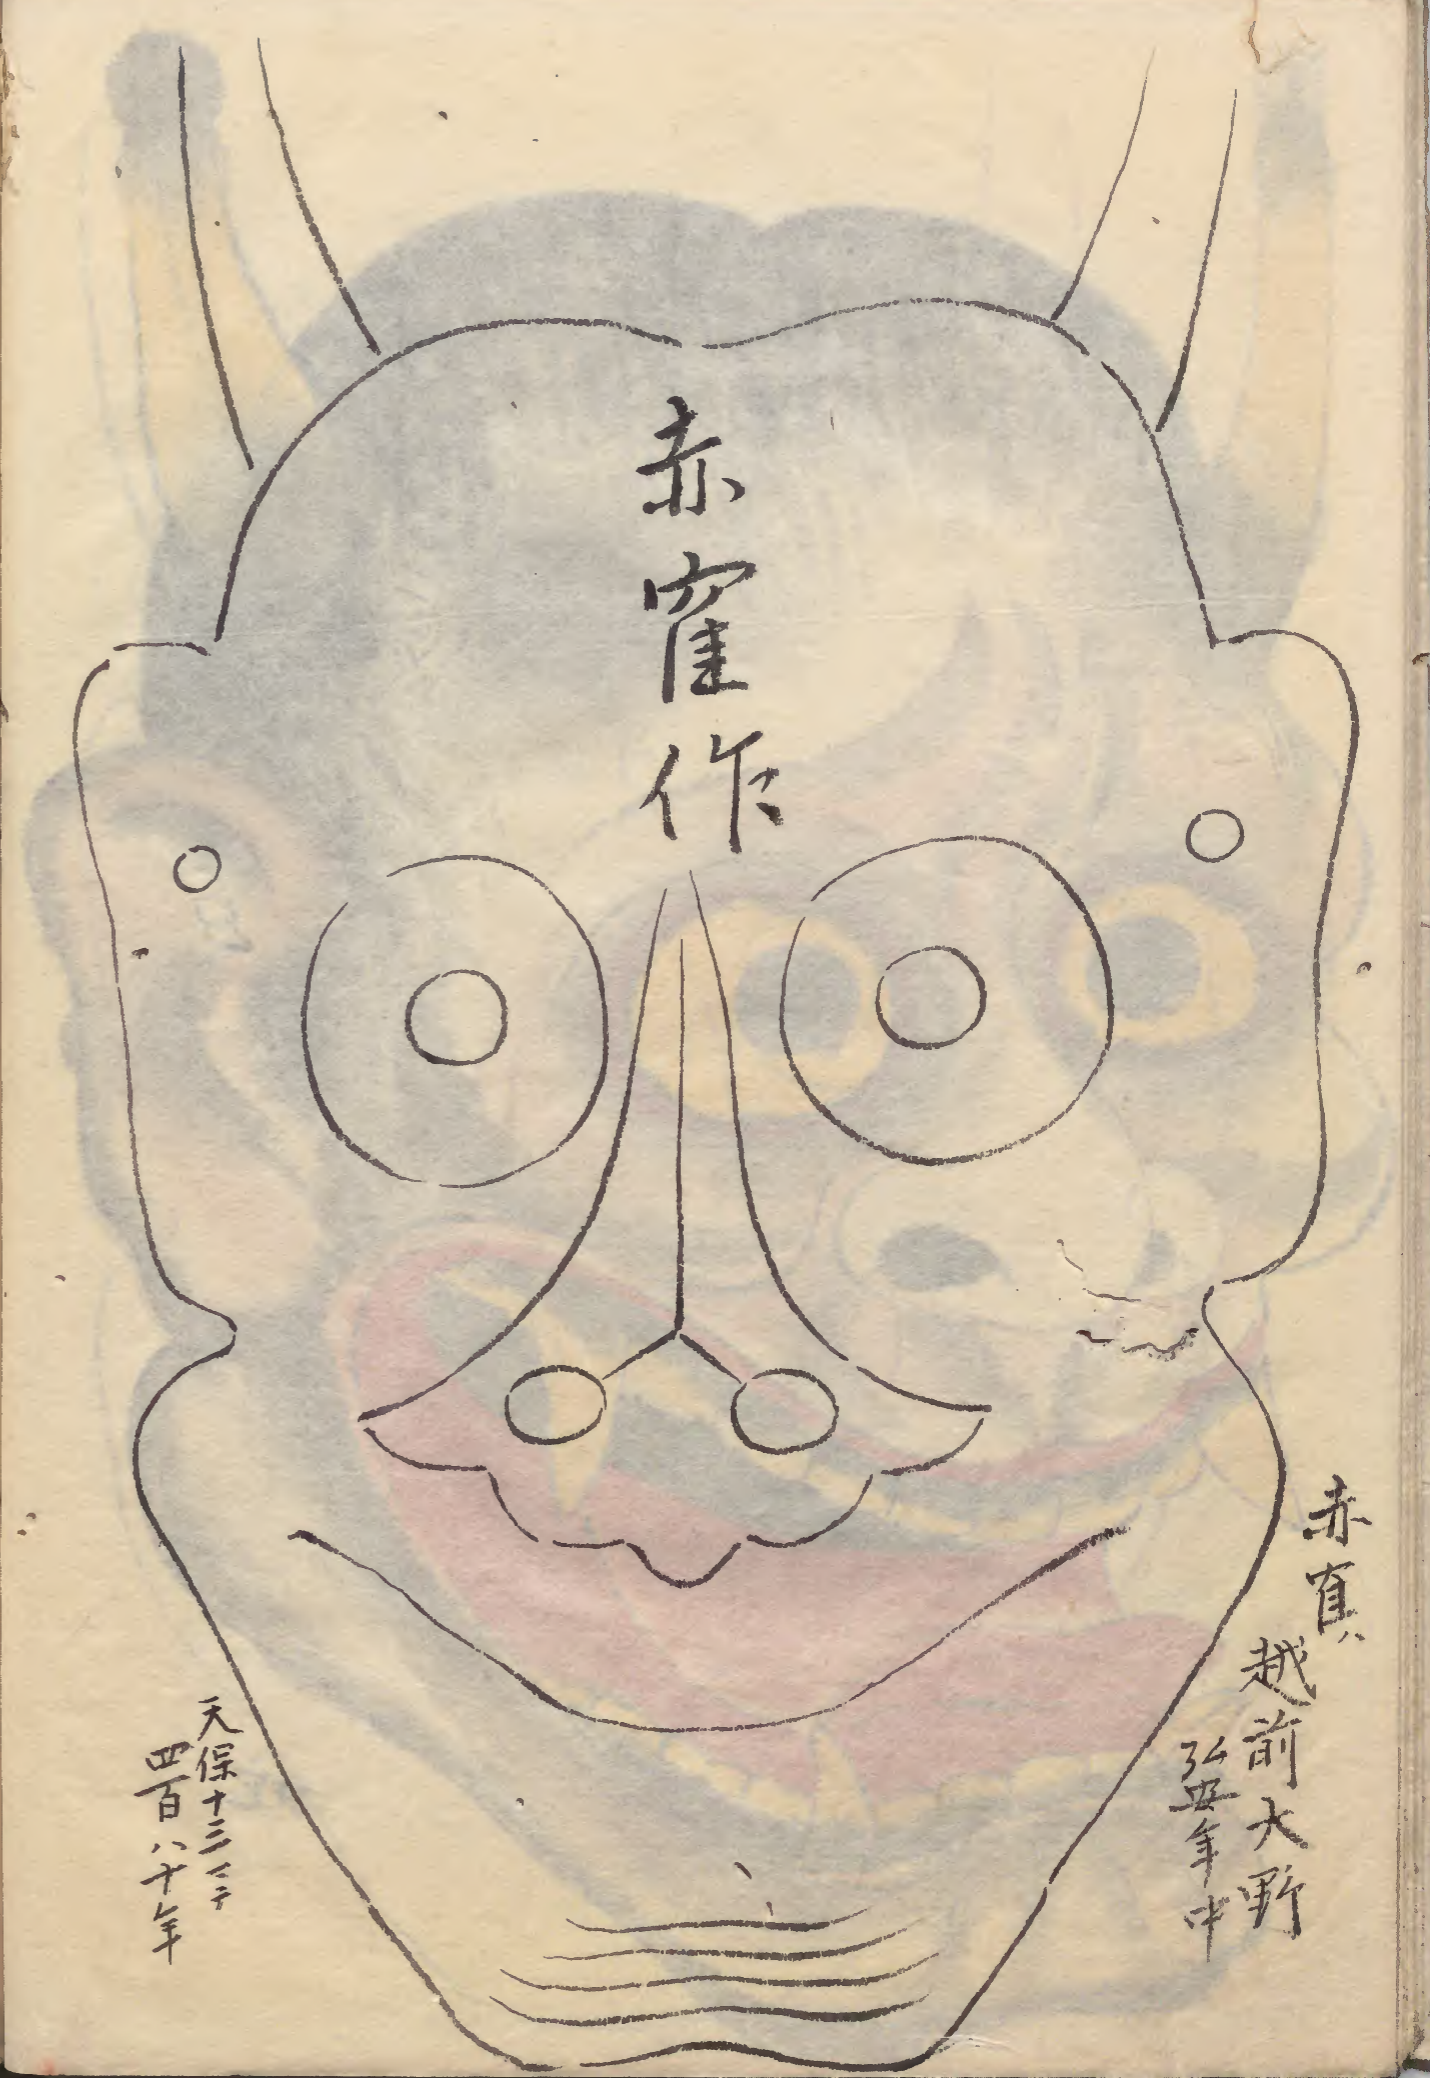 赤寉作
赤寉ハ
越前大野
弘安年中
天保十三マテ
四百八十年